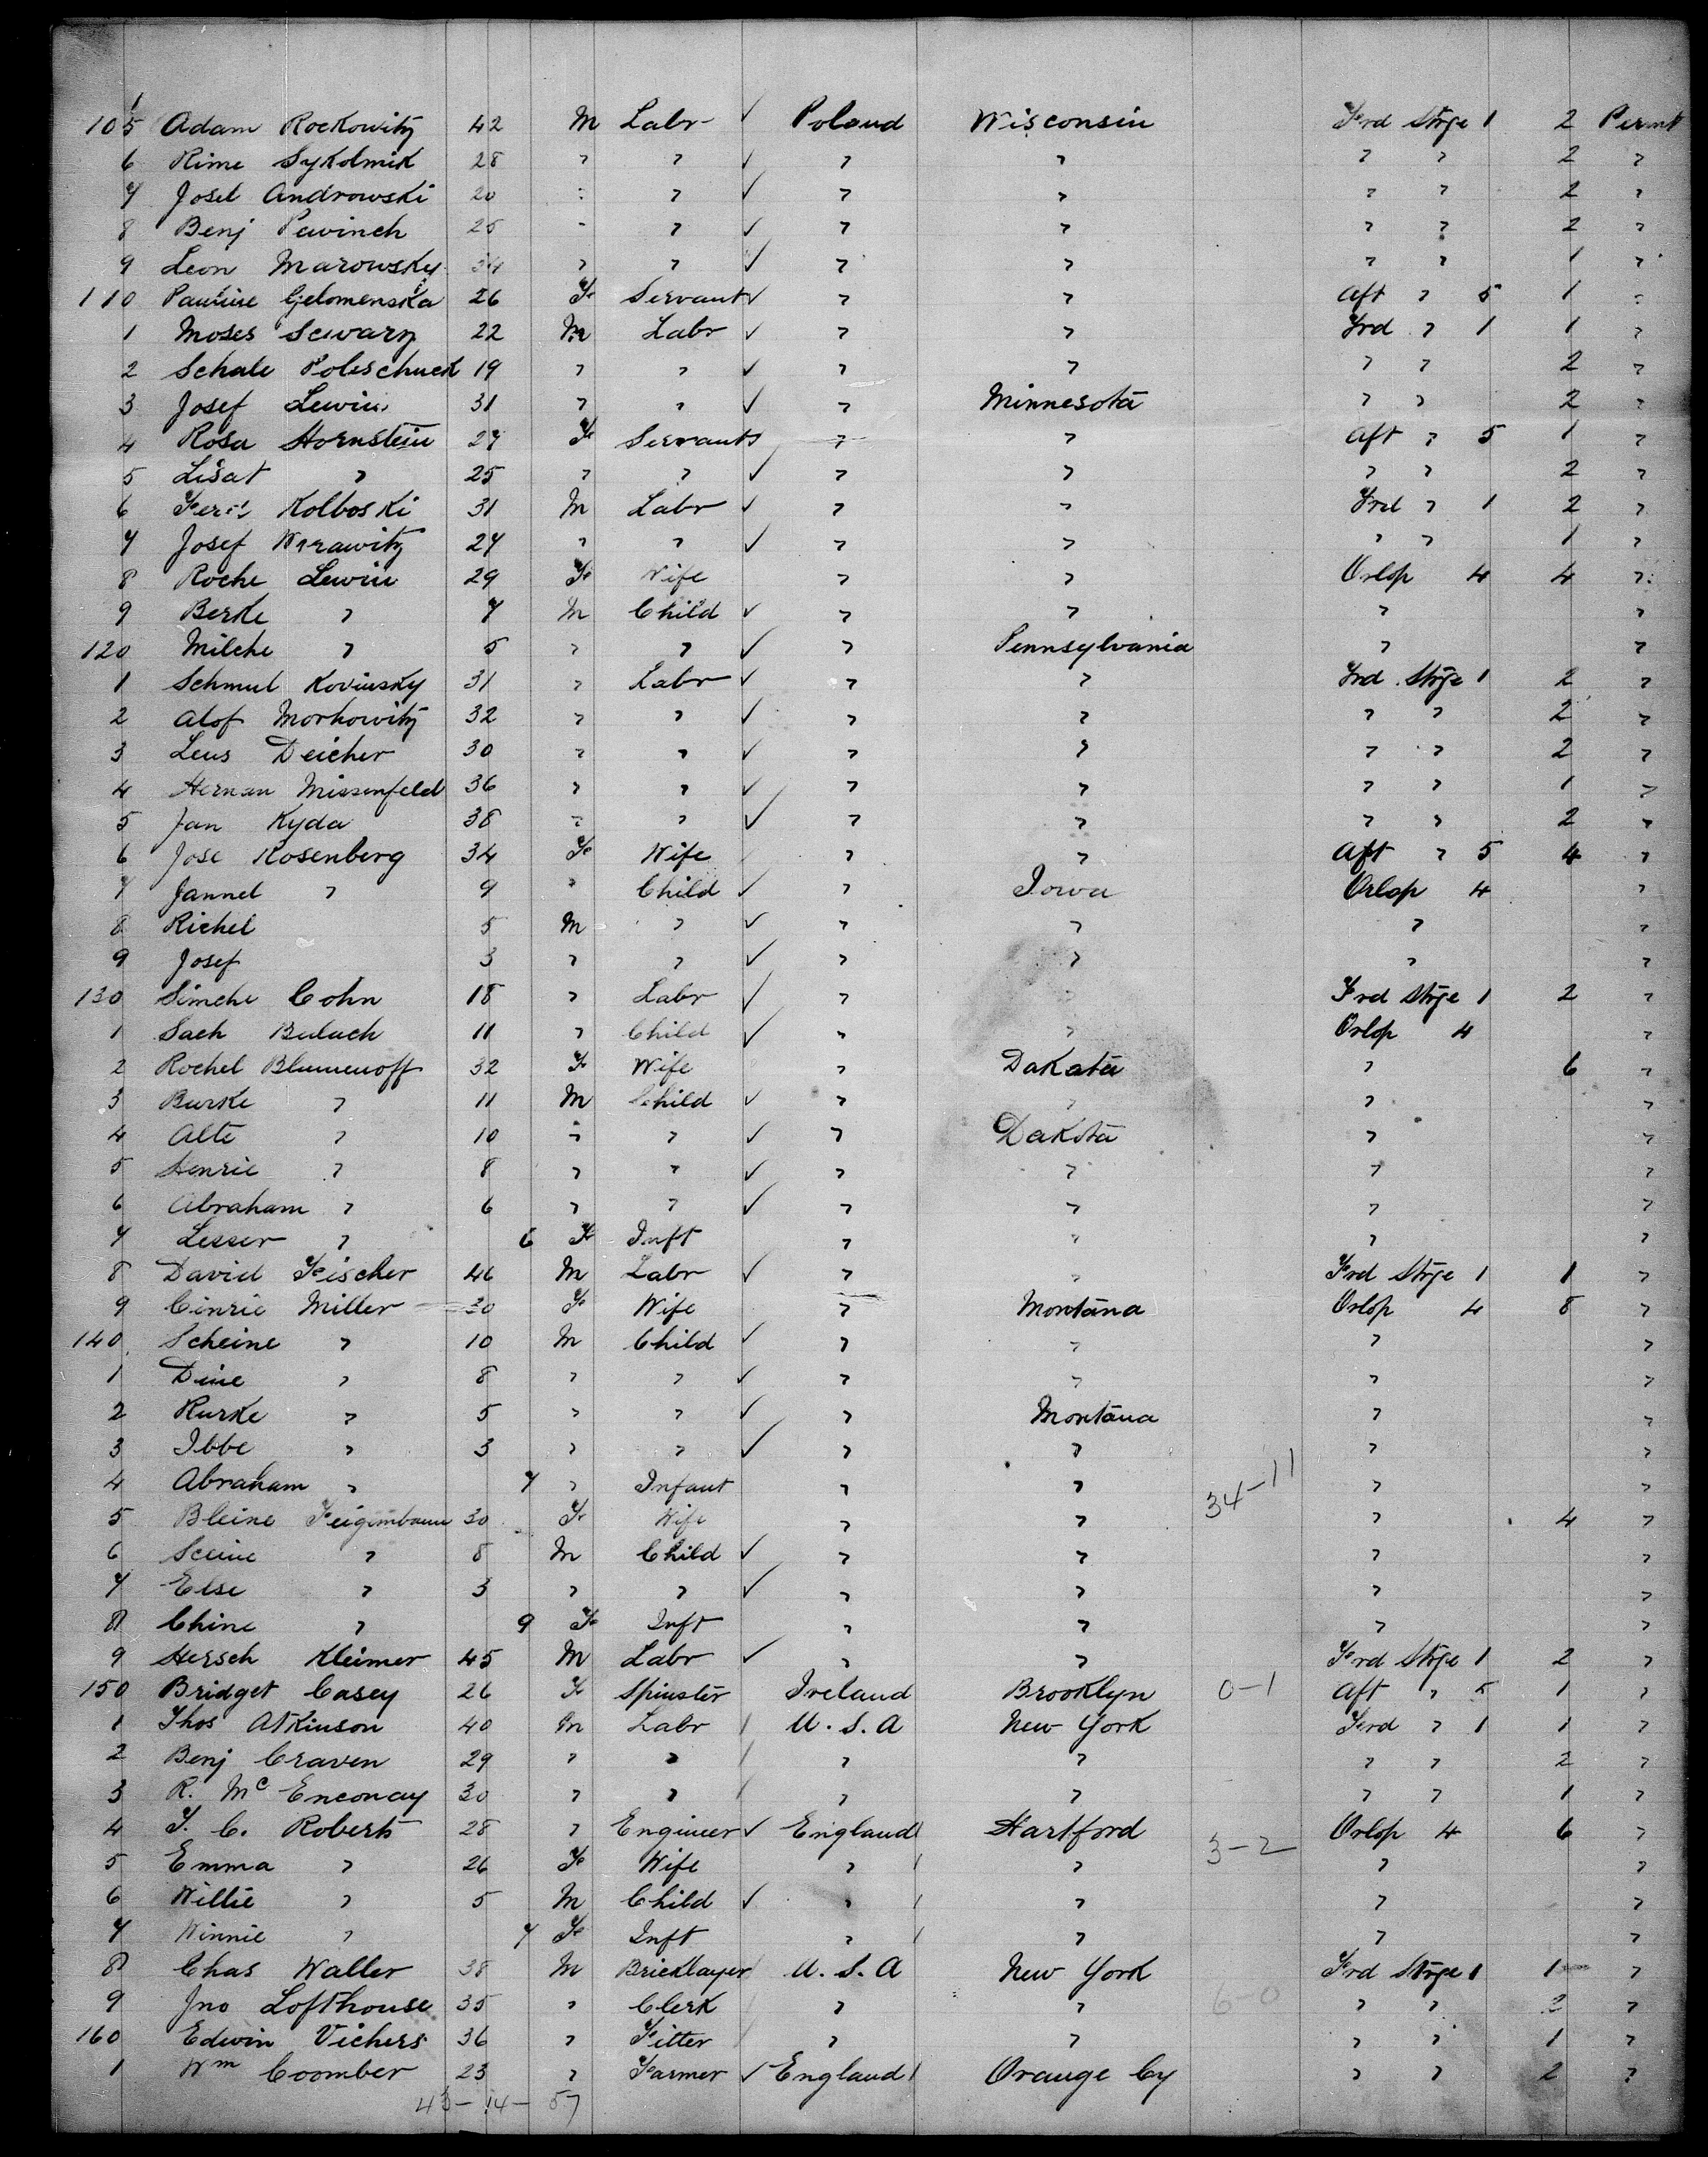 105 Adam Rockowitz 42 M Labr ✓ Poland Wisconsin Frd Strge 1 2 Permt
6 Rime Sykolmik 28 " " ✓ " " " " 2 "
7 Josel Androwski 20 " " ✓ " " " " 2 "
8 Benj Pewinch 25 " " ✓ " " " " 2 "
9 Leon Marowsky 34 " " ✓ " " " " 1 "
110 Pauline Gelomenska 26 F Servant ✓ " " Aft " 5 1 "
1 Moses Scwarz 22 M Labr ✓ " " Frd " 1 1 "
2 Schale Poleschuck 19 " " ✓ " " " " 2 "
3 Josef Lewin 31 " " ✓ " Minnesota " " 2 "
4 Rosa Hornstein 27 F Servant " " Aft " 5 1 "
5 Lisat " 25 " " ✓ " " " " 2 "
6 Kolboski 31 M Labr ✓ " " Frd " 1 2 "
7 Josef Wirawitz 27 " " ✓ " " " " 1 "
8 Roche Lewin 29 F Wife " " Orlop 4 4 "
9 Berke " 7 M Child ✓ " " " "
120 Milche " 5 " " ✓ " Pennsylvania " "
1 Schmul Kovinsky 31 " Labr ✓ " " Frd Strge 1 2 "
2 Alof Morkowitz 32 " " ✓ " " " " 2 "
3 Leus Deicher 30 " " ✓ " " " " 2 "
4 Herman Missenfeld 36 " " ✓ " " " " 1 "
5 Jan Kyda 38 " " ✓ " " " " 2 "
6 Jose Rosenberg 34 F Wife " " Aft " 5 4 "
7 Jannel " 9 " Child ✓ " Iowa Orlop 4 "
8 Richel 5 M " ✓ " " " "
9 Josef 3 " " ✓ " " " "
130 Simche Cohn 18 " Labr ✓ " " Frd Strge 1 2 "
1 Sach Bulach 11 " Child ✓ " " Orlop 4 "
2 Rochel Blumenoff 32 F Wife " Dakata " 6 "
3 Burke " 11 M Child ✓ " " " "
4 Alte " 10 " " ✓ " Dakota " "
5 Henrie " 8 " " ✓ " " " "
6 Abraham " 6 " " ✓ " " " "
7 Lesser " 6 F Inft " " " "
8 David Fischer 46 M Labr ✓ " " Frd Strge 1 1 "
9 Cinrie Miller 30 F Wife " Montana Orlop 4 8 "
140 Scheine " 10 M Child ✓ " " " "
1 Dine " 8 " " ✓ " " " "
2 Rurke " 5 " " ✓ " Montana " "
3 Ibbe " 3 " " ✓ " " " "
4 Abraham " 7 " Infant " " 34-11 " "
5 Bleine Feigimbaum 30 F Wife " " " 4 "
6 Sceine " 8 M Child ✓ " " " "
7 Else " 3 " " ✓ " " " "
8 Chine " 9 F Inft " " " "
9 Hersch Kleimer 45 M Labr ✓ " " Frd Strge 1 2 "
150 Bridget Casey 26 F Spinster Ireland Brooklyn 0-1 Aft " 5 1 "
1 Thos Atkinson 40 M Labr / U.S.A New York Frd " 1 1 "
2 Benj Craven 29 " " / " " " " 2 "
3 R. McEnconay 30 " " / " " " " 1 "
4 T. C. Roberts 28 " Engineer ✓ England / Hartford 3-2 Orlop 4 6 "
5 Emma " 26 F Wife " / " " "
6 Willie " 5 M Child ✓ " / " " "
7 Winnie " 7 F Inft " / " " "
8 Chas Waller 38 M Bricklayer / U.S.A New York Frd Strge 1 1 "
9 Jno Lofthouse 35 " Clerk / " " 6-0 " " 2 "
160 Edwin Vickers 36 " Fitter / " " " " 1 "
1 Wm Coomber 23 " Farmer ✓ England / Orange Cy " " 2 "
43-14-57